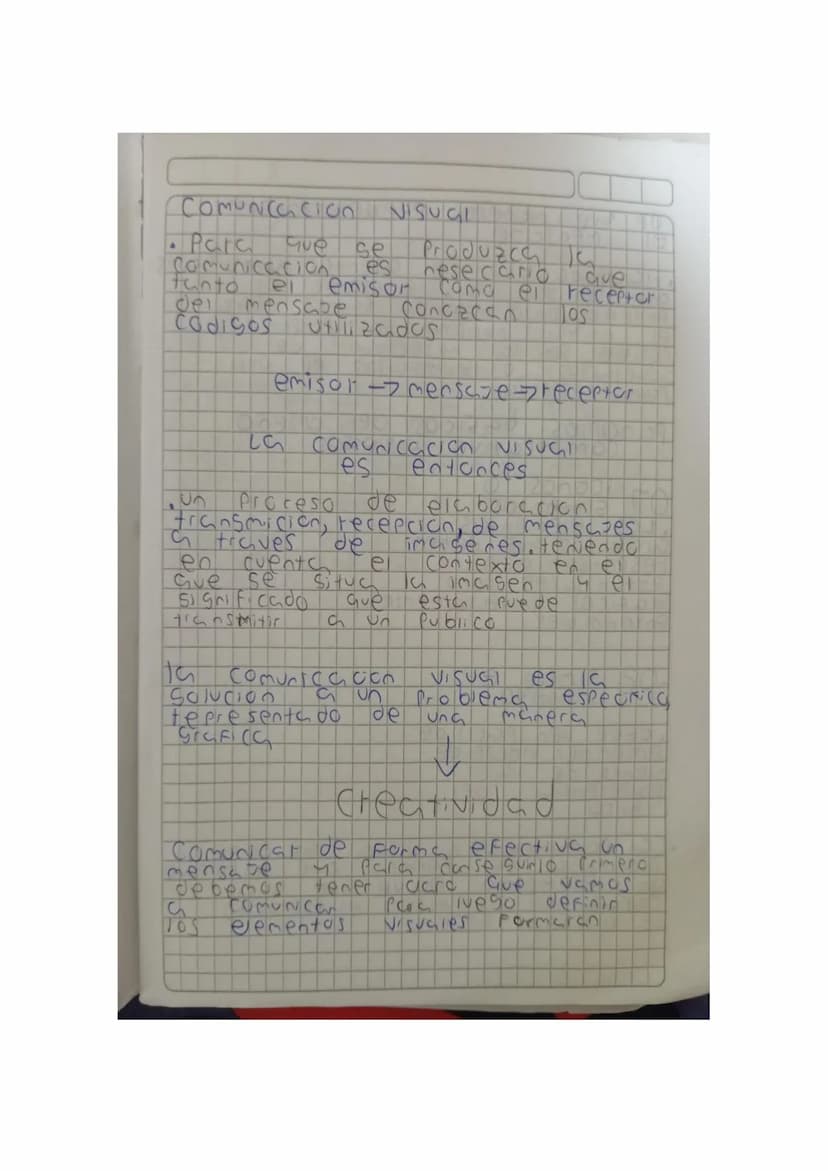 comunicacion visual
. Para que se produzca la
comunicacion es nesecario que
tanto el emisor como el receptor
del mensaje conozcan los
codigos utilizados
emisor → mensaje → receptor
La comunicacion visual
es entonces
. un proceso de elaboracion
transmicion, recepcion, de mensajes
a traves de imagenes. teniendo
en cuenta el contexto en el
que se situa la imagen y el
significado que esta puede
transmitir a un publico
la comunicacion visual es la
solucion a un problema especifico
representado de una manera
grafica
↓
creatividad
comunicar de forma efectiva un
mensaje y para conseguirlo primero
debemos tener claro que vamos
a comunicar para luego definir
los elementos visuales formaran